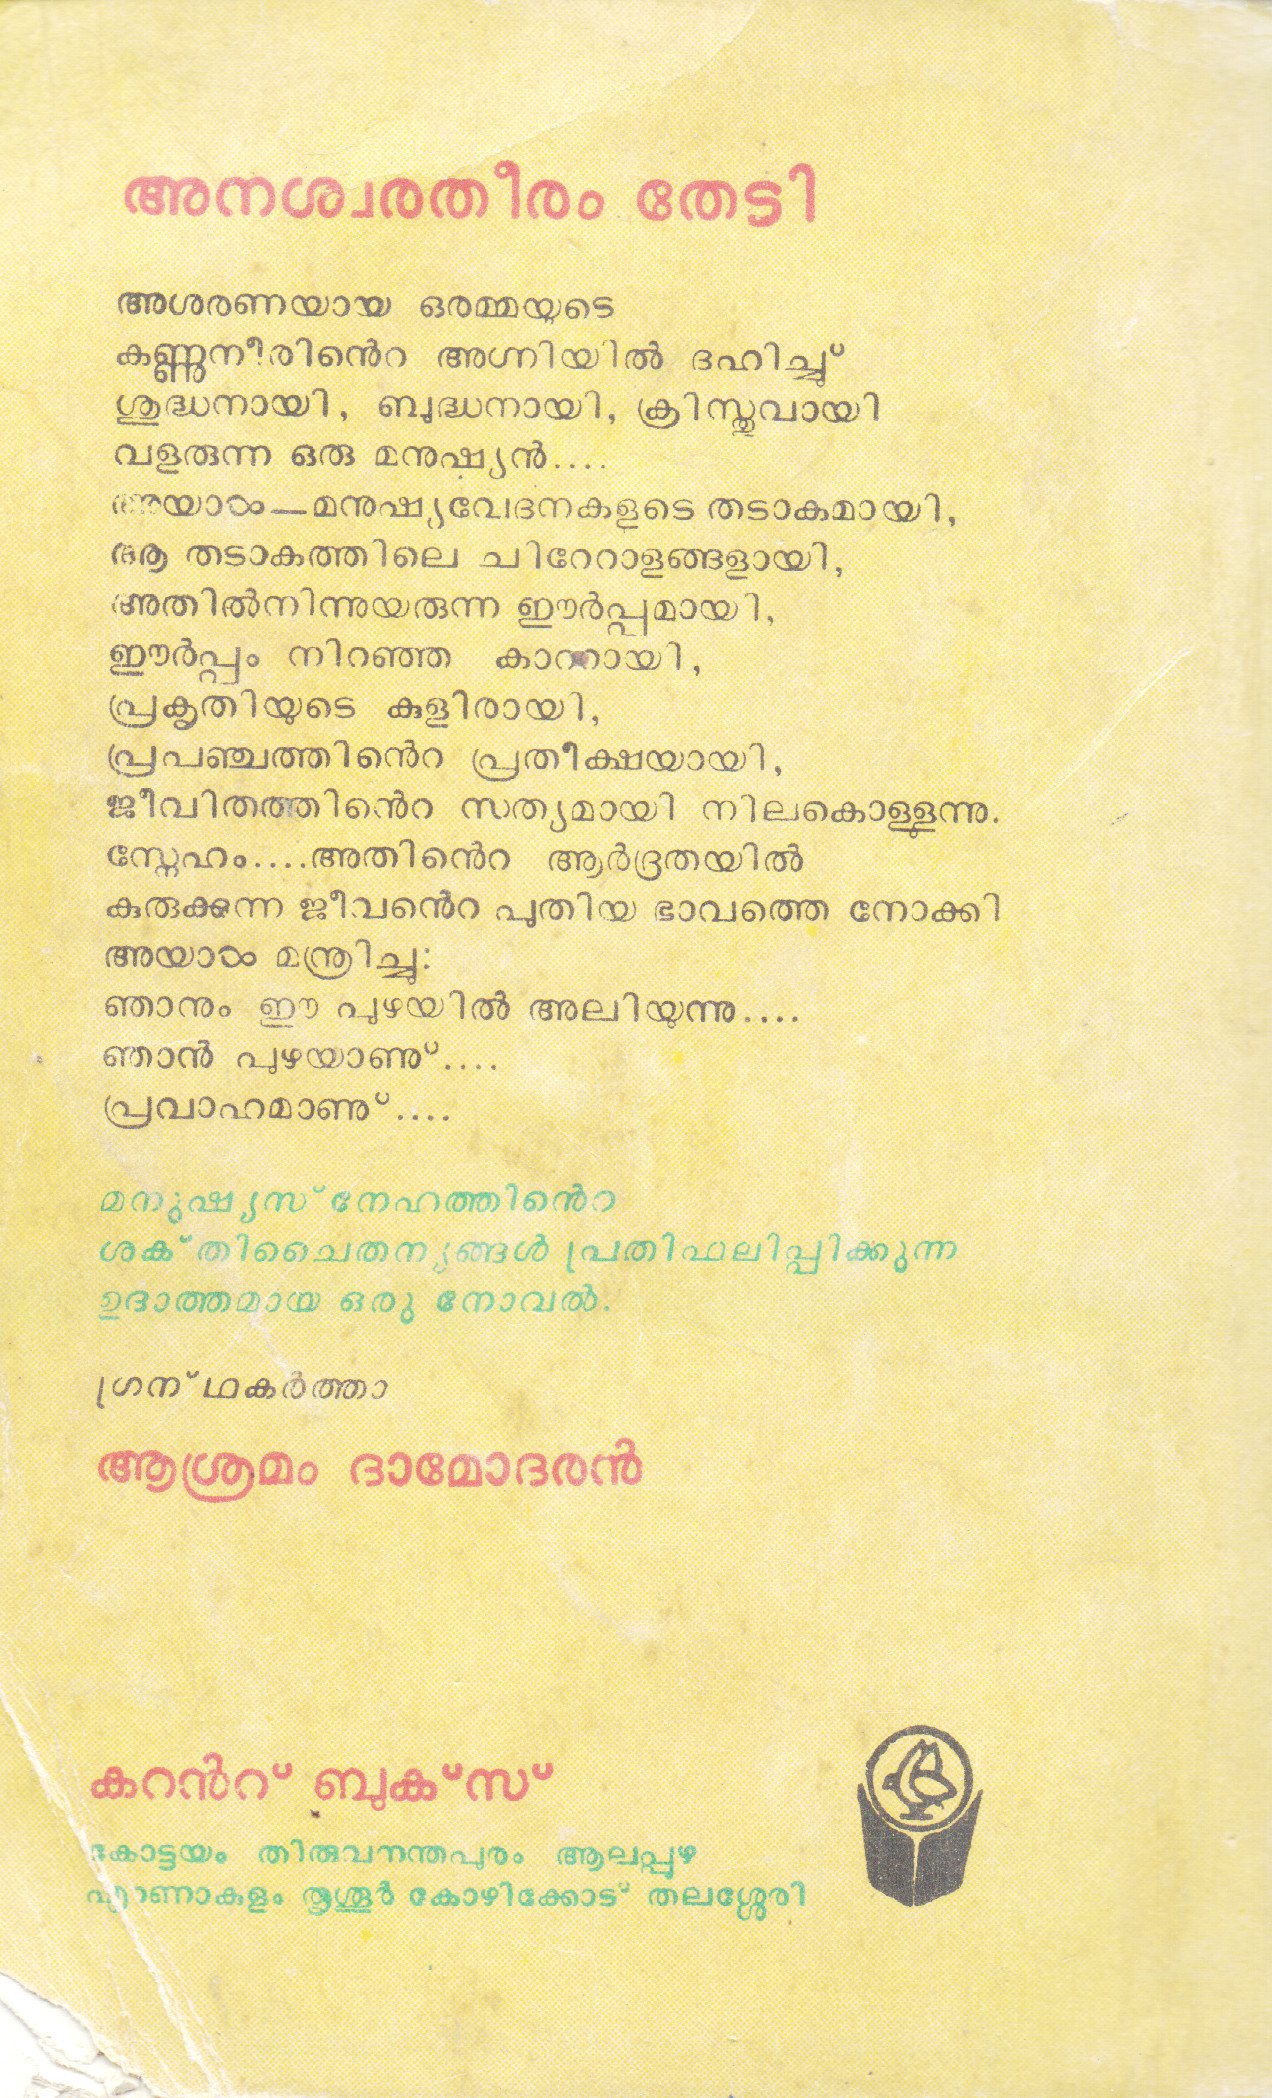 അനശ്വരതീരം തേടി
അശരണയായ ഒരമ്മയുടെ
കണ്ണുനീരിൻെറ അഗ്നിയിൽ ദഹിച്ചു്
ശുദ്ധനായി, ബുദ്ധനായി, ക്രിസ്തുവായി
വളരുന്ന ഒരു മനുഷ്യൻ....
അയാൾ—മനുഷ്യവേദനകളുടെ തടാകമായി,
ആ തടാകത്തിലെ ചിറേറാളങ്ങളായി,
അതിൽനിന്നുയരുന്ന ഈർപ്പമായി,
ഈർപ്പം നിറഞ്ഞ കാറ്റായി,
പ്രകൃതിയുടെ കുളിരായി,
പ്രപഞ്ചത്തിൻെറ പ്രതീക്ഷയായി,
ജീവിതത്തിൻെറ സത്യമായി നിലകൊള്ളുന്നു.
സ്നേഹം....അതിൻെറ ആർദ്രതയിൽ
കുരുക്കുന്ന ജീവൻെറ പുതിയ ഭാവത്തെ നോക്കി
അയാൾ മന്ത്രിച്ചു:
ഞാനും ഈ പുഴയിൽ അലിയുന്നു....
ഞാൻ പുഴയാണു്....
പ്രവാഹമാണു്....
മനുഷ്യസ്നേഹത്തിൻെറ
ശക്തിചൈതന്യങ്ങൾ പ്രതിഫലിപ്പിക്കുന്ന
ഉദാത്തമായ ഒരു നോവൽ.
ഗ്രന്ഥകർത്താ
ആശ്രമം ദാമോദരൻ
കറൻറ് ബുക്സ്
കോട്ടയം തിരുവനന്തപുരം ആലപ്പുഴ
എറണാകുളം തൃശൂർ കോഴിക്കോട് തലശ്ശേരി